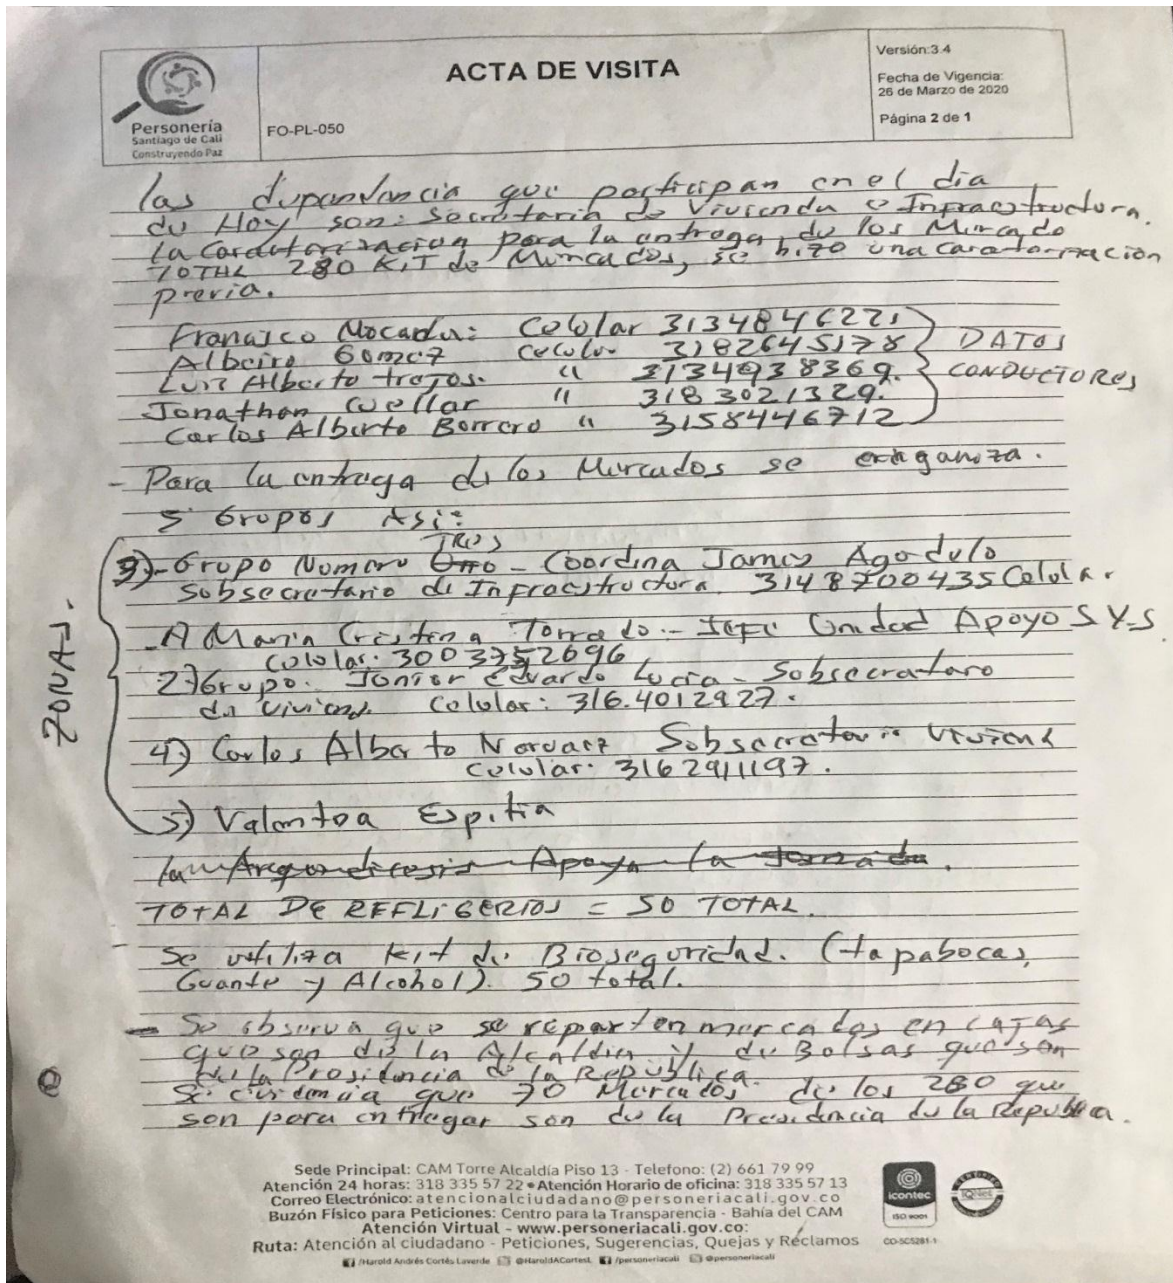 Personería
Santiago de Cali
Construyendo Paz
ACTA DE VISITA
FO-PL-050
Versión:3.4
Fecha de Vigencia:
26 de Marzo de 2020
Página 2 de 1
las dependencia que participan en el dia
de Hoy son: Secretaria de Vivienda e Infraestructura.
La para la entrega de los Mercado
TOTAL 280 KIT de Mercados, se hizo una
previa.
Francisco Celular
Albeiro Gomez Celular 3182645178
Luis Alberto trejos. " 3134938369.
Jonathan Cuellar " 3183021329.
Carlos Alberto Borrero " 3158446712
DATOS
CONDUCTORES
- Para la entrega de los Mercados se
5 Grupos Asi:
TRES
3)- Grupo Numero - Coordina James Agudelo
Subsecretario de Infraestructura. 3148700435 Celular
- A Maria Cristina - Jefe Unidad Apoyo S Y S.
Celular:
2) Grupo. Junior Eduardo Lucia - Subsecretaro
de Vivienda Celular: 316.4012927.
4) Carlos Alberto Subsecretario Vivienda
Celular: 3162911197.
5) Espitia
ZONAS.
la Apoya la
TOTAL DE REFLIGERIOS = 50 TOTAL.
Se utiliza kit de Bioseguridad. (tapabocas,
Guante y Alcohol). 50 total.
- Se observa que se reparten mercados en CAJAS
que son de la Alcaldia y de Bolsas que son
de la Presidencia de la Republica.
Se evidencia que 70 Mercados de los 280 que
son para entregar son de la Presidencia de la Republica.
Sede Principal: CAM Torre Alcaldía Piso 13 - Telefono: (2) 661 79 99
Atención 24 horas: 318 335 57 22 • Atención Horario de oficina: 318 335 57 13
Correo Electrónico: atencionalciudadano@personeriacali.gov.co
Buzón Físico para Peticiones: Centro para la Transparencia - Bahía del CAM
Atención Virtual - www.personeriacali.gov.co:
Ruta: Atención al ciudadano - Peticiones, Sugerencias, Quejas y Réclamos
/Harold Andrés Cortés Laverde @HaroldACortesL /personeriacali @personeriacali
icontec
ISO 9001
IQNet
CO-SC5281-1